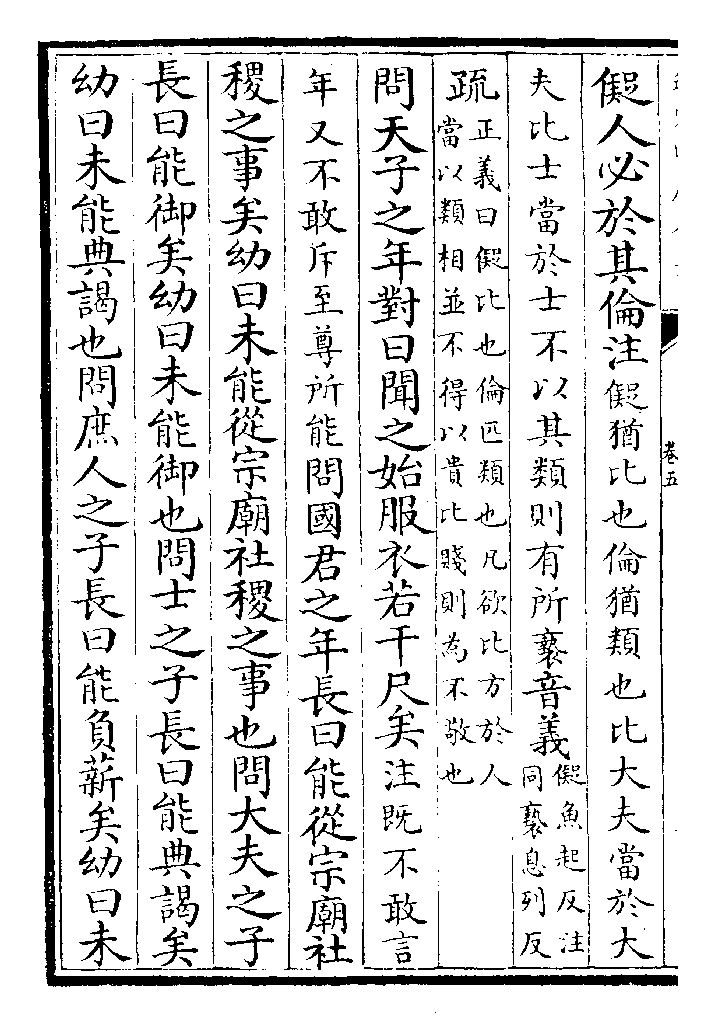 儗人必於其倫注儗猶比也倫猶類也比大夫當於大
夫比士當於士不以其類則有所褻音義儗魚起反注
同褻息列反
疏正義曰儗比也倫匹類也凡欲比方於人
當以類相並不得以貴比賤則為不敬也
問天子之年對曰聞之始服衣若干尺矣注既不敢言
年又不敢斥至尊所能問國君之年長曰能從宗廟社
稷之事矣幼曰未能從宗廟社稷之事也問大夫之子
長曰能御矣幼曰未能御也問士之子長曰能典謁矣
幼曰未能典謁也問庶人之子長曰能負薪矣幼曰未
卷五